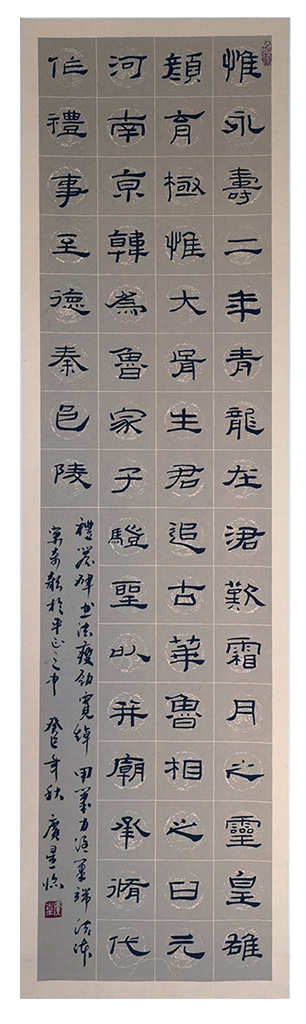 惟永壽二年青龍在涒歎霜月之靈皇雄
顏育極惟大生君追古華魯相之曰元
河南京韓為魯家子聖以并廟承脩代
作禮事至德秦邑陵
禮器碑書法瘦勁寬綽 用筆力注筆端
寓奇於平正之中 癸巳年秋 廣星臨